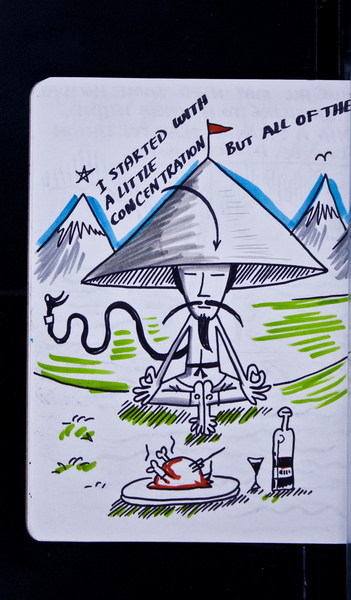 I STARTED WITH
A LITTLE
CONCENTRATION
BUT ALL OF THE